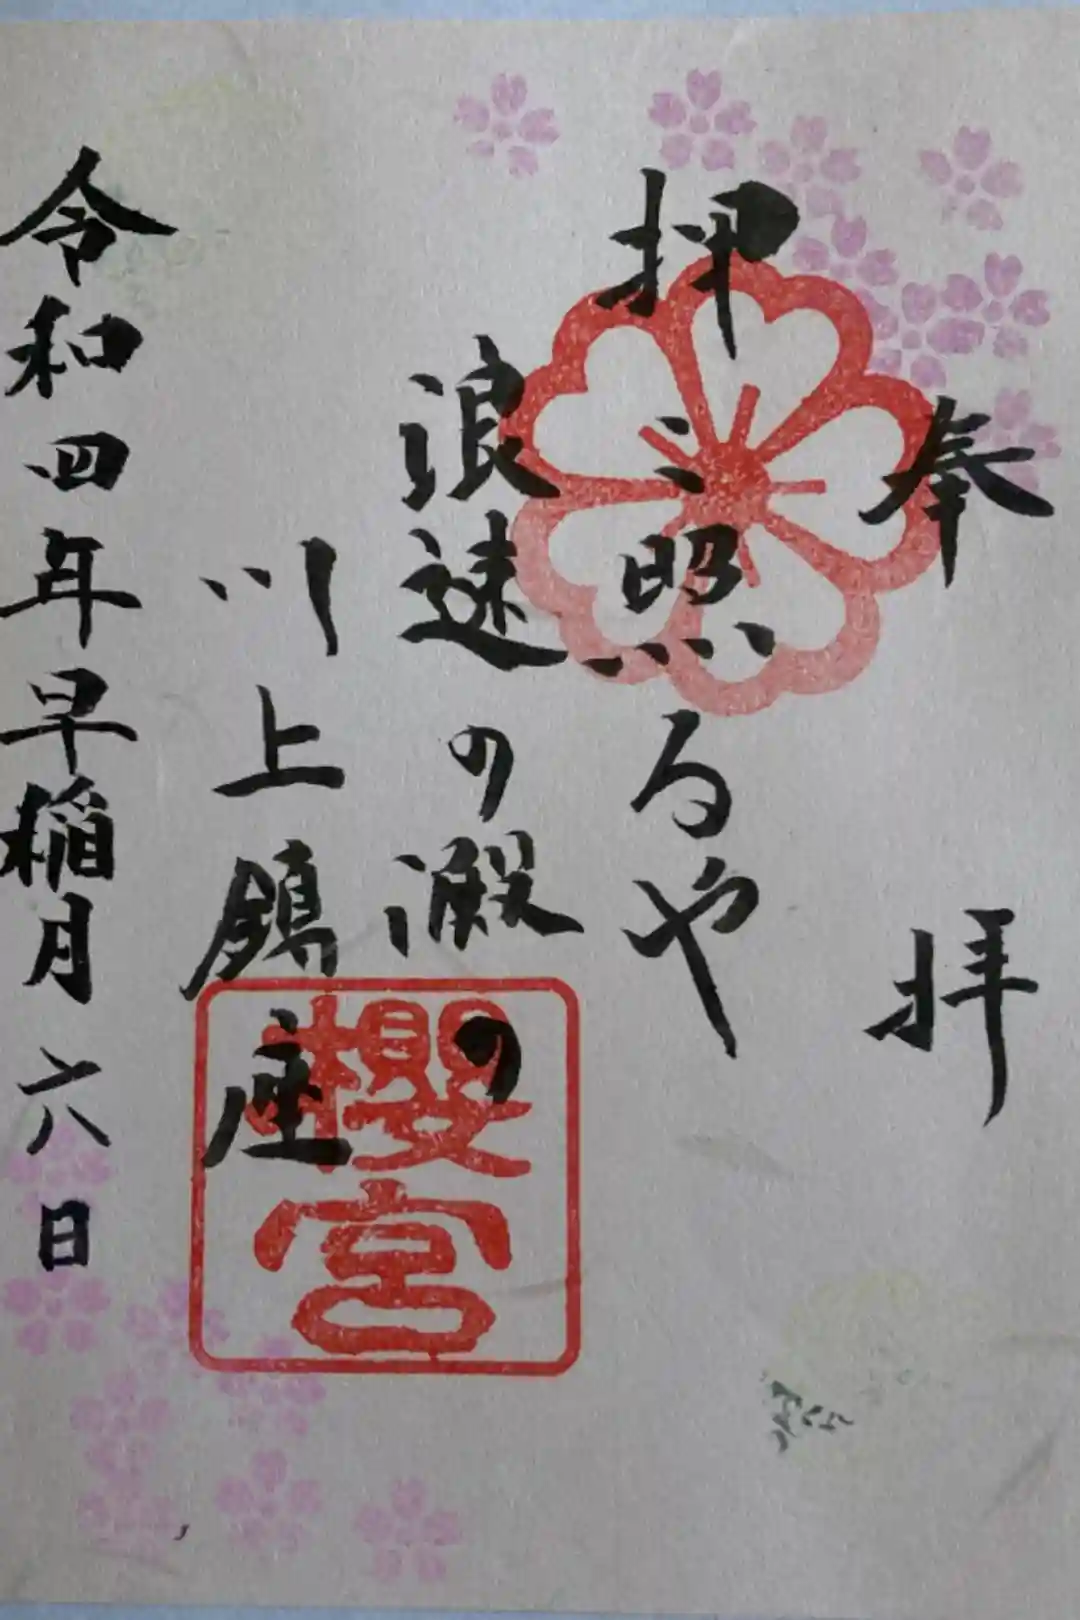 奉拝
押照るや
浪速の澱の
川上鎮座
令和四年早稲月六日
櫻宮